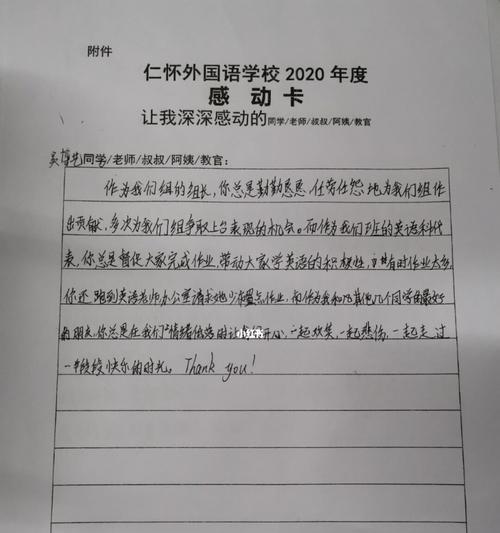 附件
仁怀外国语学校2020年度
感动卡
让我深深感动的同学/老师/叔叔/阿姨/教官
同学/老师/叔叔/阿姨/教官：
作为我们组的组长，你总是勤勤恳恳、任劳任怨地为我们组作
出贡献，多次为我们组争取上台表现的机会。而作为我们班的英语科代
表，你总是督促大家完成作业，带动大家学英语的积极性，有时作业太多，
你还跑到英语老师办公室请求她少布置点作业，而作为我和其他几个同学最好
的朋友，你总是在我们情绪低落时让我们开心，一起欢笑，一起悲伤，一起走过
一段段快乐的时光。Thank you!
小红书